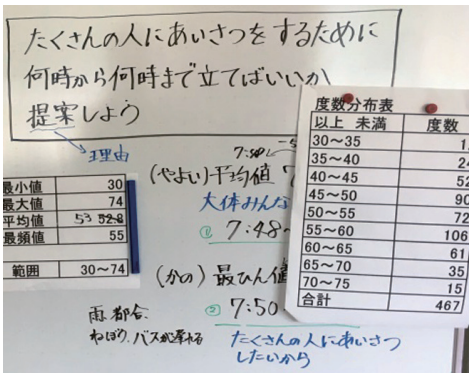 たくさんの人にあいさつをするために
何時から何時まで立てばいいか
提案しよう
理由
最小値 30
最大値 74
平均値 53 52.8
最頻値 55
範囲 30～74
(やよい)平均値
大体みんな
① 7:48～
(かの)最ひん値
② 7:50
たくさんの人にあいさつ
したいから
雨、都合、
ねぼう、バスが遅れる
度数分布表
以上 未満 度数
30～35
35～40
40～45 52
45～50 90
50～55 72
55～60 106
60～65 61
65～70 35
70～75 15
合計 467